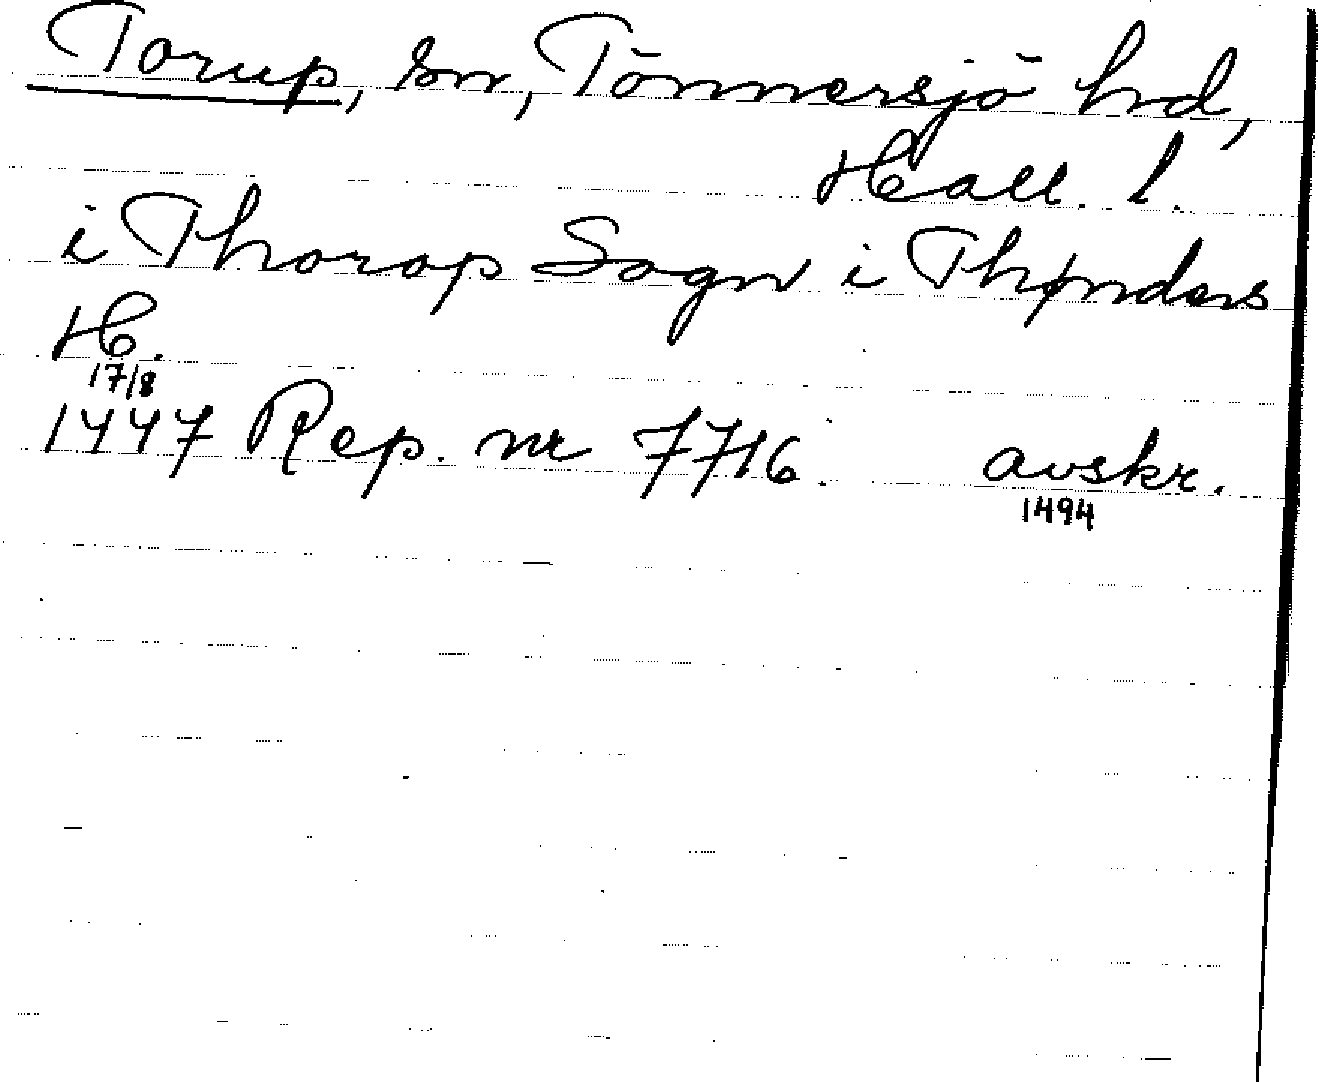 Torup, sn, Tönnersjö hrd,
Hall. l.
i Thorop Sogn i Thønders
H.
17/8
1447 Rep. nr 7716. avskr.
1494